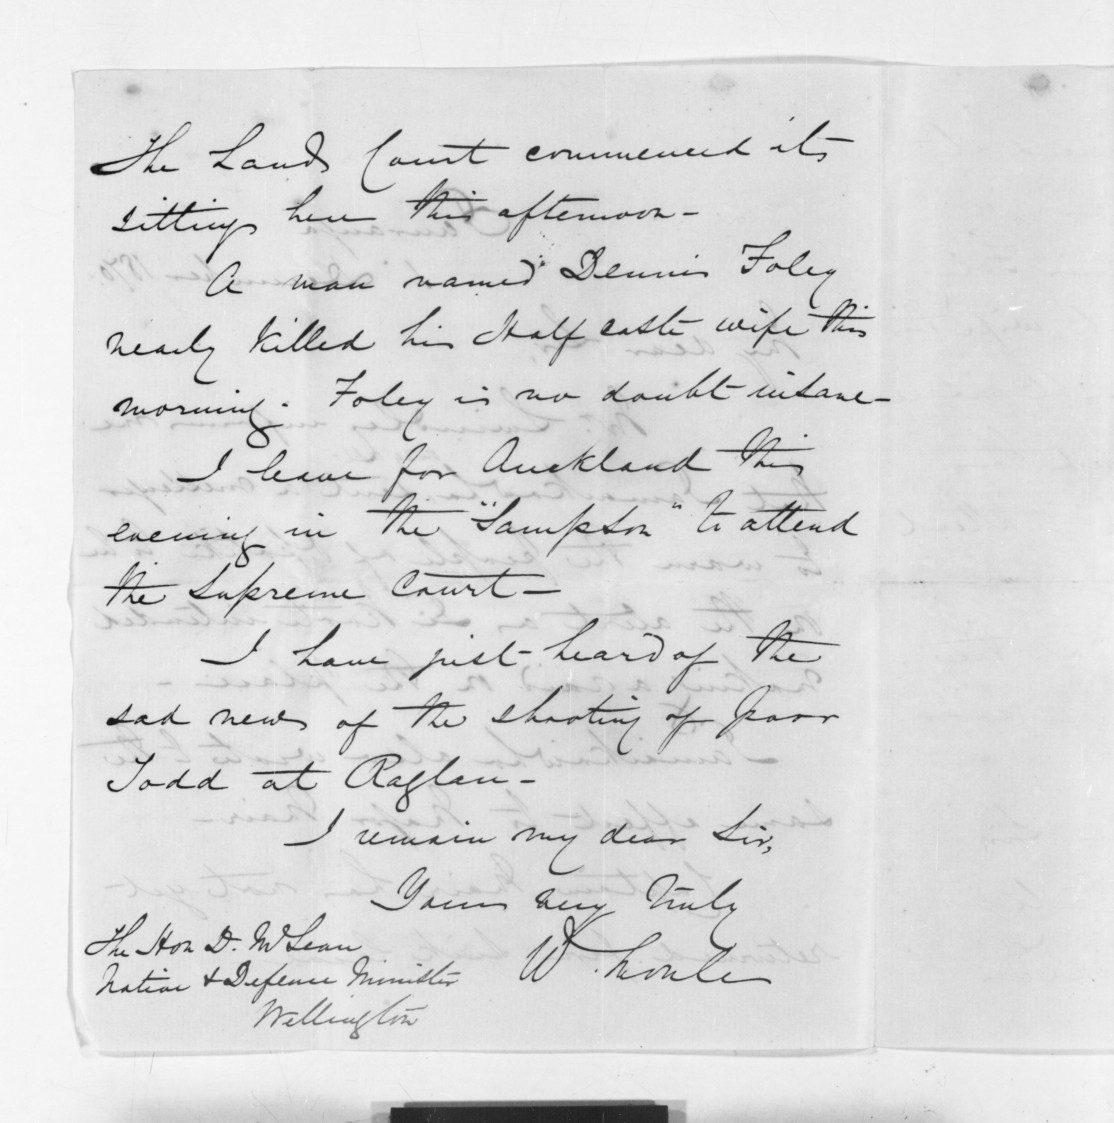 The Lands Court commenced its
sitting here this afternoon -
A man named Dennis Foley
nearly killed his Half caste wife this
morning. Foley is no doubt insane -
I leave for Auckland this
evening in the "Sampson" to attend
the Supreme Court -
I have just heard of the
sad news of the shooting of poor
Todd at Raglan -
I remain my dear Sir,
Yours very truly
W. Moule
The Hon D. McLean
Native & Defence Minister
Wellington